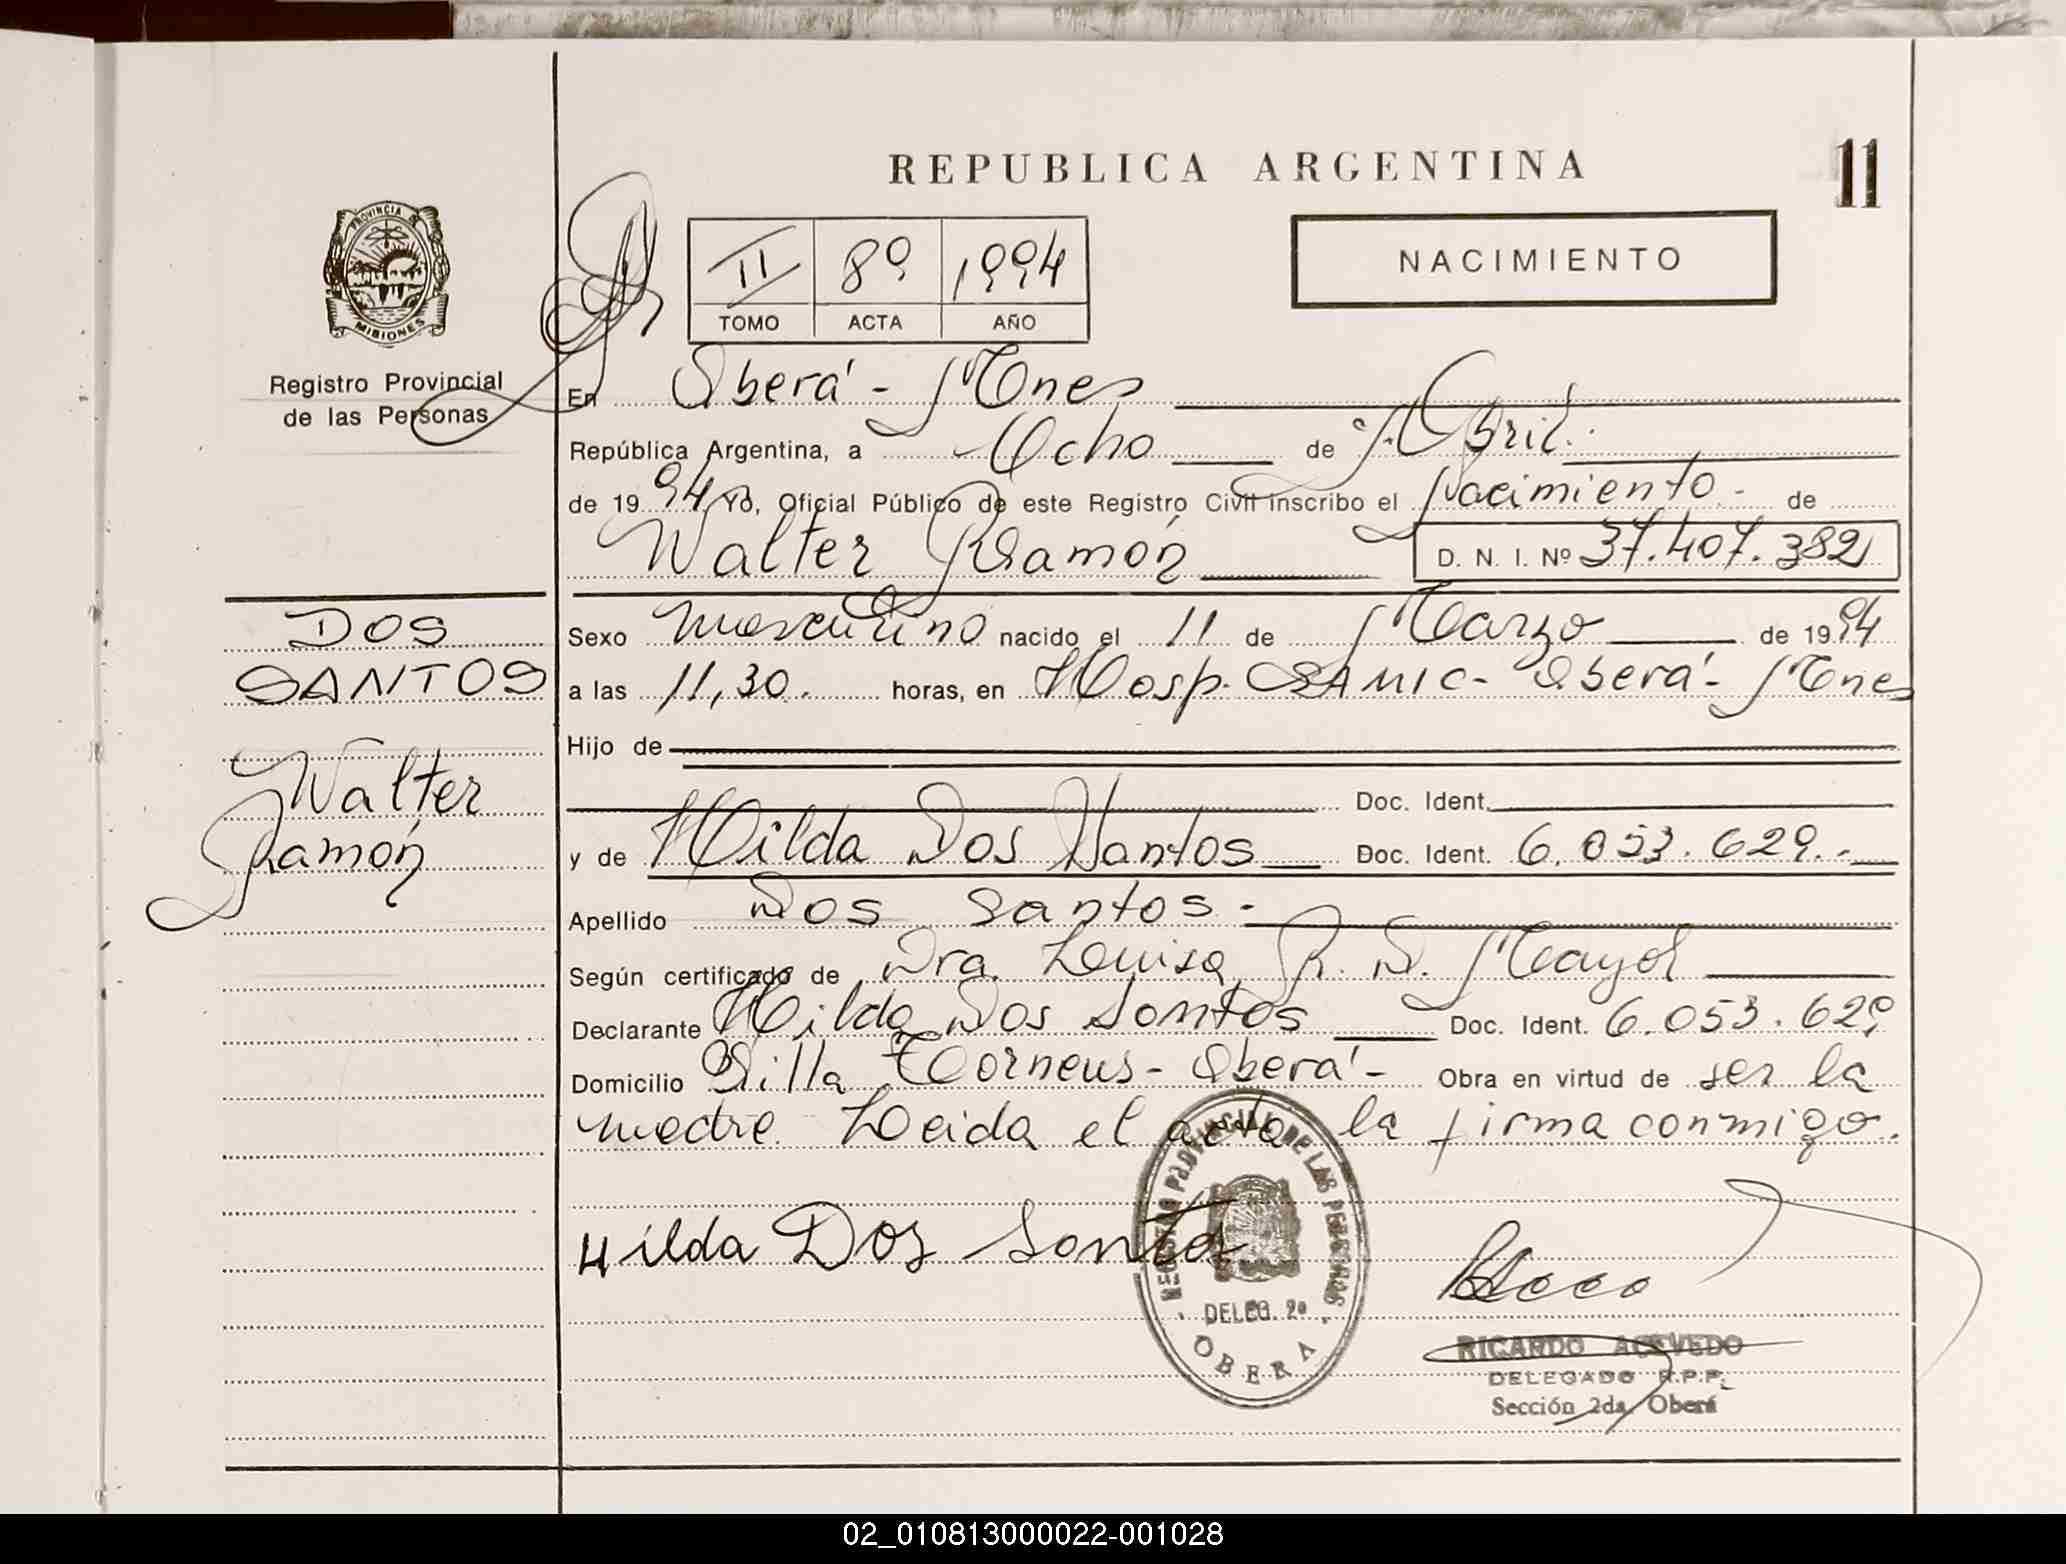 REPUBLICA ARGENTINA
11
NACIMIENTO
PROVINCIA DE
MISIONES
Registro Provincial
de las Personas
II 89 1994
TOMO ACTA AÑO
En Oberá - Mnes
República Argentina, a Ocho de Abril.
de 1994 Yo, Oficial Público de este Registro Civil inscribo el Nacimiento - de
Walter Ramón D. N. I. Nº 37.407.382
DOS
SANTOS
Walter
Ramón
Sexo Masculino nacido el 11 de Marzo de 1994
a las 11,30. horas, en Hosp. SAMIC - Oberá - Mnes
Hijo de
Doc. Ident.
y de Hilda Dos Santos Doc. Ident. 6.053.629.-
Apellido Dos Santos.-
Según certificado de Dra. Luisa R. D. Mayol
Declarante Hilda Dos Santos Doc. Ident. 6.053.629
Domicilio Villa Torneus - Oberá - Obra en virtud de ser la
madre. Leida el acta la firma conmigo.
Hilda Dos Santos
REGISTRO PROVINCIAL DE LAS PERSONAS
DELEG. 2ª
OBERA
RICARDO ACEVEDO
DELEGADO R.P.P.
Sección 2da, Oberá
02_010813000022-001028